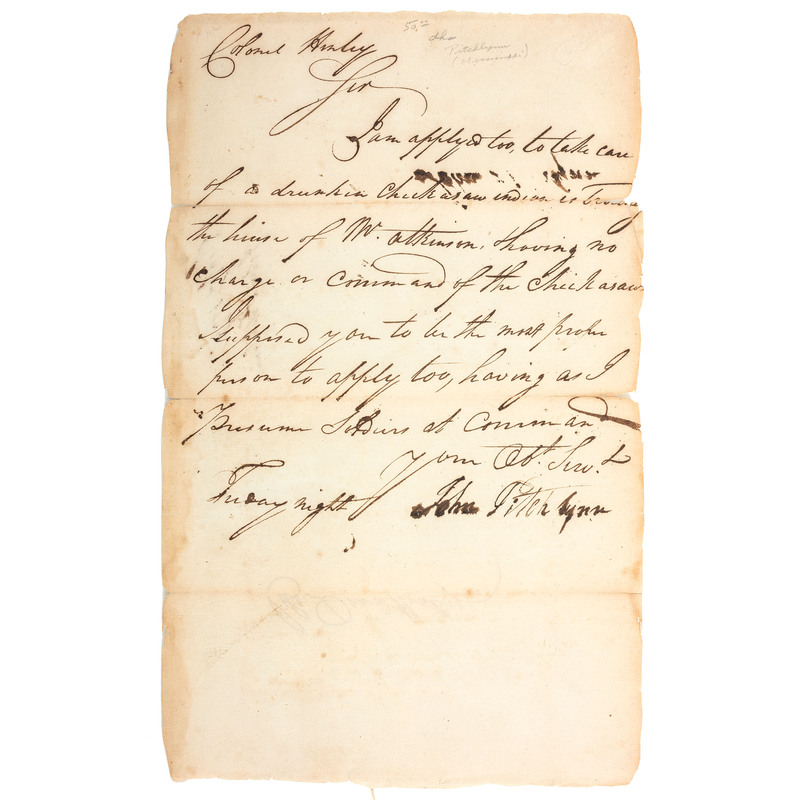 50.00
dhs
Pitchlynn
Colonel Henley
Sir
I am applyed too, to take care
of a drunken Checkasaw indian is
the house of Mr. Atkinson. & having no
Charge or Command of the Checkasaws
I supposed you to be the most proper
person to apply too, having as I
Presume Soldiers at Command
your Obt. Servt.
Friday night John Pitchlynn